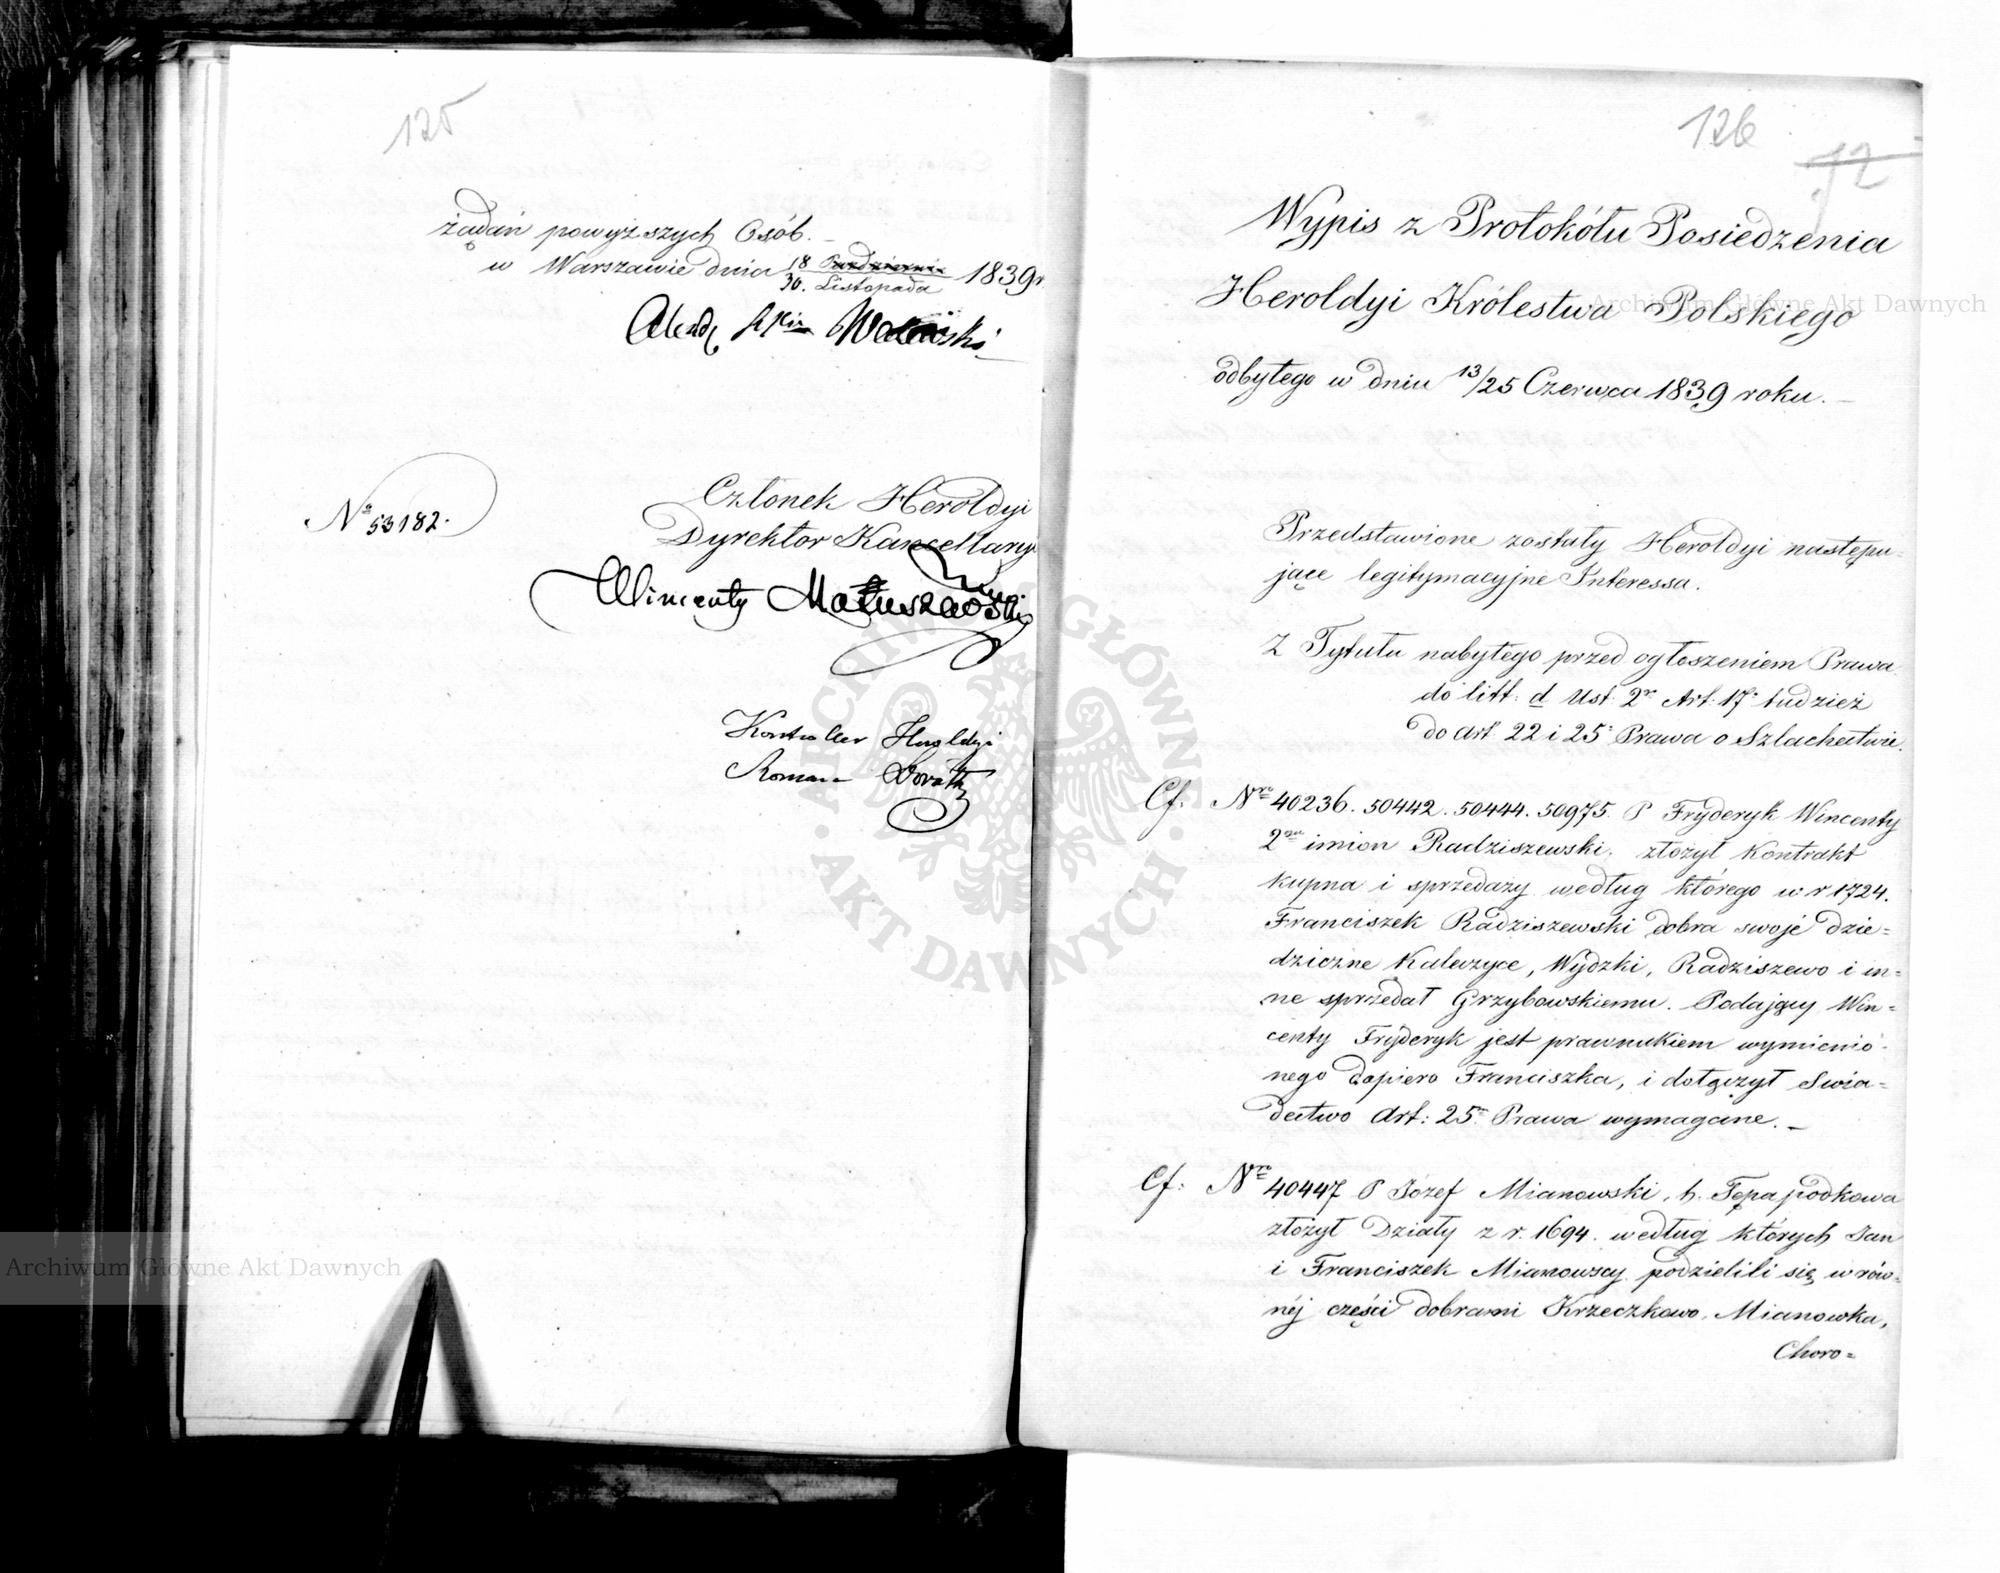 125
żądań powyższych Osób. _
w Warszawie dnia 18 Października / 30. Listopada 1839 r.
Człónek Heroldyi
Dyrektor Kancellaryi
Nº 53182.
Wincenty Matuszewski
Kontroller Heroldyi
Roman
126
12
Wypis z Protokółu Posiedzenia
Heroldyi Królestwa Polskiego
odbytego w dniu 13/25 Czerwca 1839 roku. _
Przedstawione zostały Heroldyi następu=
jące legitymacyjne Interessa.
Z Tytułu nabytego przed ogłoszeniem Prawa
do litt: d Ust. 2º Art: 17º tudzież
do Art 22 i 25º Prawa o Szlachectwie.
Cf: Nro 40236. 50442. 50444. 50975. P Fryderyk Wincenty
2ga imion Radziszewski. złożył Kontrakt
kupna i sprzedaży według którego w r 1724.
Franciszek Radziszewski dobra swoje dzie=
dziczne Kaleczyce, Wydzki, Radziszewo i in=
ne sprzedał Grzybowskiemu. Podający Win=
centy Fryderyk jest prawnukiem wymienio=
nego dopiero Franciszka, i dołączył Swia=
dectwo Art: 25m Prawa wymagane. _
Cf: Nro 40447 P Józef Mianowski, h. Tępapodkowa
złożył Działy z r. 1694. według których Jan
i Franciszek Mianowscy podzielili się w rów=
néj części dobrami Krzeczkowo, Mianowka,
Choro=
Archiwum Główne Akt Dawnych
Archiwum Główne Akt Dawnych
ARCHIWUM GŁÓWNE · AKT DAWNYCH ·